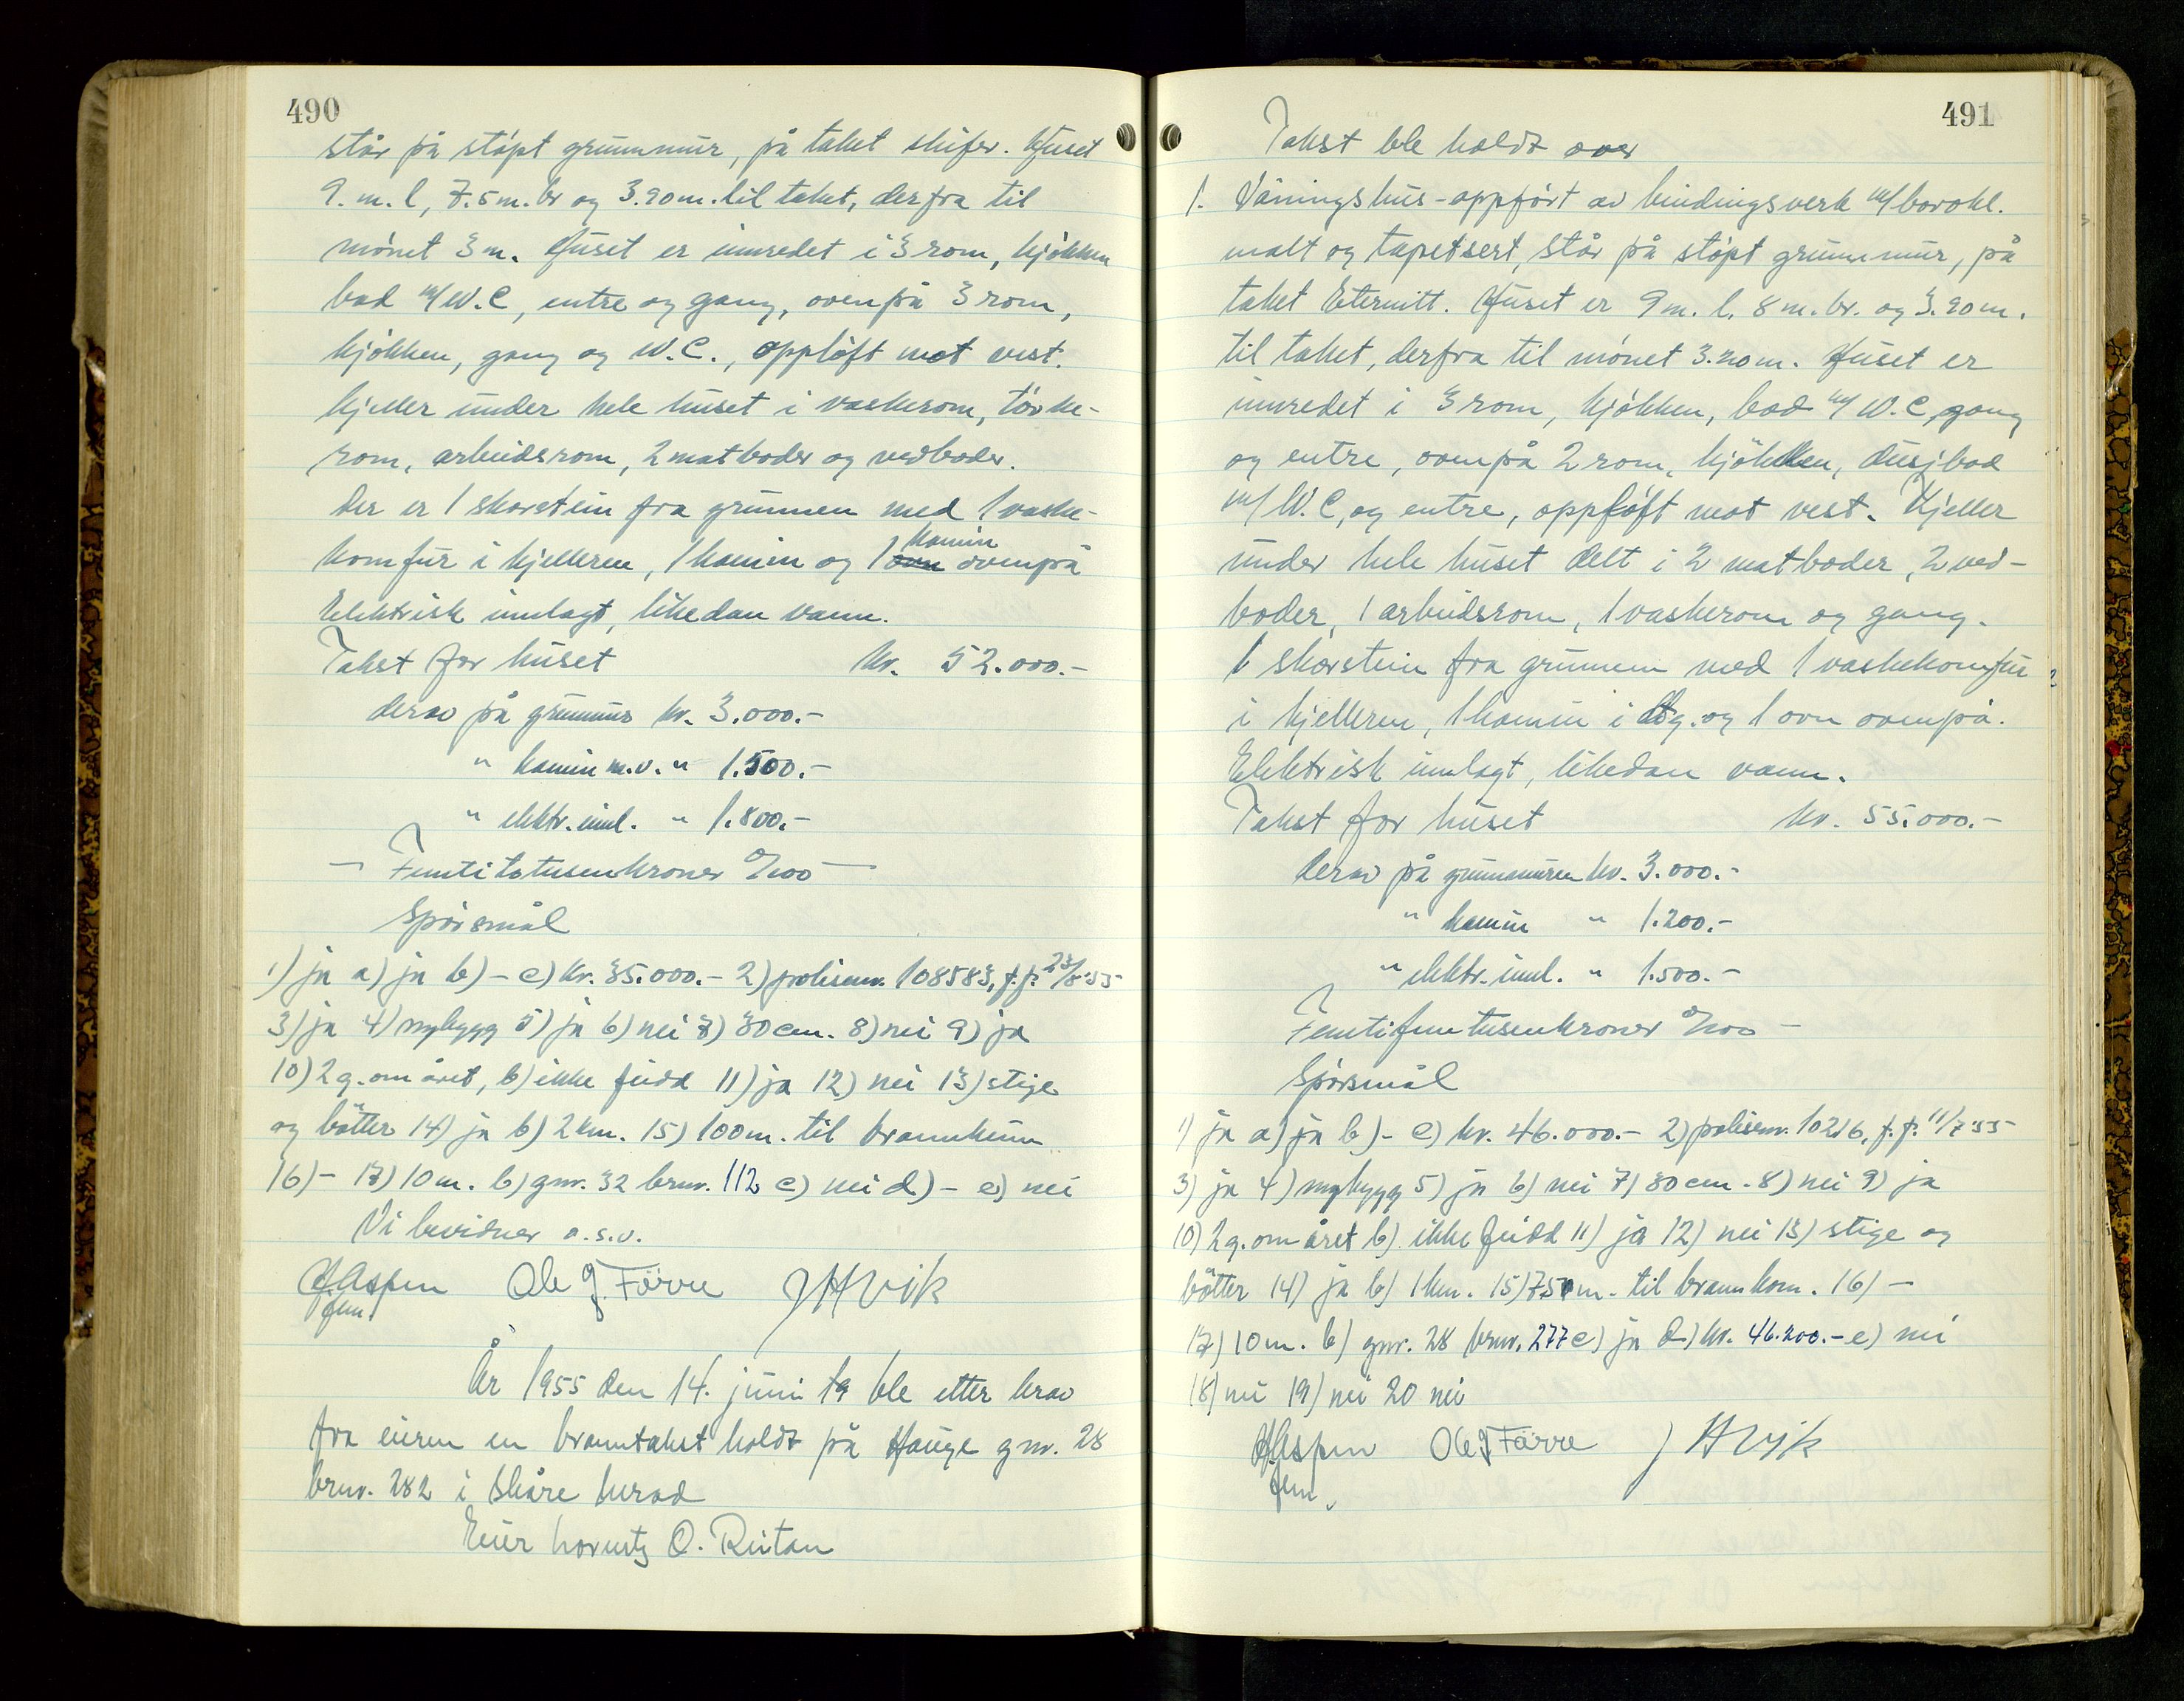 490
står på støpt grunnmur, på taket skifer. Huset
9. m. l, 7.5 m. br og 3.90 m. til taket, derfra til
mønet 3 m. Huset er innredet i 3 rom, kjøkken
bad m/ W.C, entre og gang, ovenpå 3 rom,
kjøkken, gang og W.C., oppløft mot vest.
Kjeller under hele huset i vaskerom, tørke-
rom, arbeidsrom, 2 matboder og vedboder.
Der er 1 skorstein fra grunnen med 1 vaske-
kamin
komfur i kjelleren, 1 kamin og 1 ovn ovenpå
Elektrisk innlagt, likedan vann.
Takst for huset kr. 52.000.-
derav på grunnmur kr. 3.000.-
" kamin m.v. " 1.500.-
" elektr. innl. " 1.800.-
— Femtitotusenkroner 0/100 —
Spørsmål
1) ja a) ja b) - c) kr. 35.000.- 2) polisenr. 108583, f.f. 23/8-55
3) ja 4) nybygg 5) ja 6) nei 7) 30 cm. 8) nei 9) ja
10) 2 g. om året, b) ikke fudd 11) ja 12) nei 13) stige
og bøtter 14) ja b) 2 km. 15) 100 m. til brannkum
16) - 17) 10 m. b) gnr. 32 brnr. 112 c) nei d) - e) nei
Vi bevidner o.s.v.
H Aspen Ole J. Førre J H Vik
fem.
År 1955 den 14. juni 19 ble etter krav
fra eieren en branntakst holdt på Hauge gnr. 28
brnr. 282 i Skåre herad
Eier hovmstr O. Reitan
491
Takst ble holdt over
1. Våningshus - oppført av bindingsverk m/bordkl.
malt og tapetsert, står på støpt grunnmur, på
taket Eternitt. Huset er 9 m. l. 8 m. br. og 3.90 m.
til taket, derfra til mønet 3.20 m. Huset er
innredet i 3 rom, kjøkken, bad m/ W.C, gang
og entre, ovenpå 2 rom, kjøkken, dusjbad
m/ W.C, og entre, oppløft mot vest. Kjeller
under hele huset delt i 2 matboder, 2 ved-
boder, 1 arbeidsrom, 1 vaskerom og gang.
1 skorstein fra grunnen med 1 vaskekomfur
i kjelleren, 1 kamin i og 1 ovn ovenpå.
Elektrisk innlagt, likedan vann.
Takst for huset kr. 55.000.-
Derav på grunnmuren kr. 3.000.-
" kamin " 1.200.-
" elektr. innl. " 1.500.-
Femtifemtusenkroner 0/100 -
Spørsmål
1) ja a) ja b) - c) kr. 46.000.- 2) polisenr. 10216, f.f. 11/7-55
3) ja 4) nybygg 5) ja 6) nei 7) 30 cm. 8) nei 9) ja
10) 2 g. om året b) ikke fudd 11) ja 12) nei 13) stige og
bøtter 14) ja b) 1 km. 15) 75 m. til brannkom. 16) -
17) 10 m. b) gnr. 28 brnr. 277 c) ja d) kr. 46.200.- e) nei
18) nei 19) nei 20 nei
H Aspen Ole J Førre J H Vik
fem.